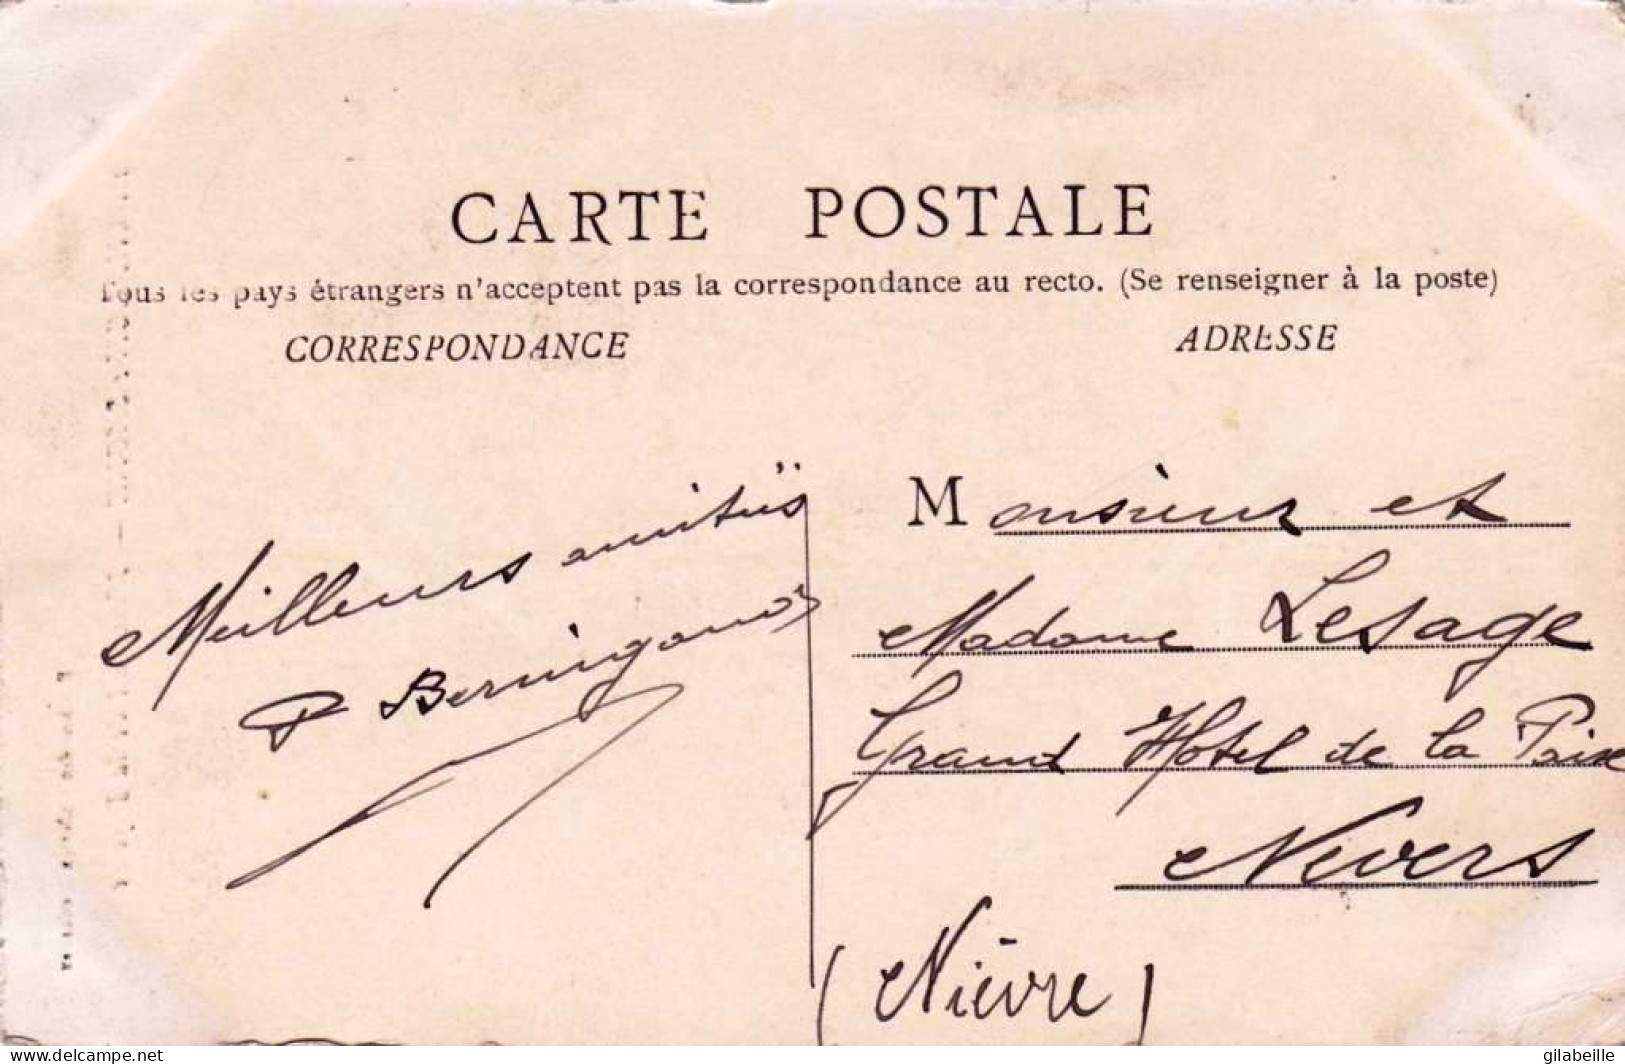 CARTE POSTALE
Tous les pays étrangers n'acceptent pas la correspondance au recto. (Se renseigner à la poste)
CORRESPONDANCE
ADRESSE
Meilleurs amitiés
P
Monsieur et
Madame Lesage
Grand Hôtel de la Paix
Nevers
(Nièvre)
www.delcampe.net
gilabeille